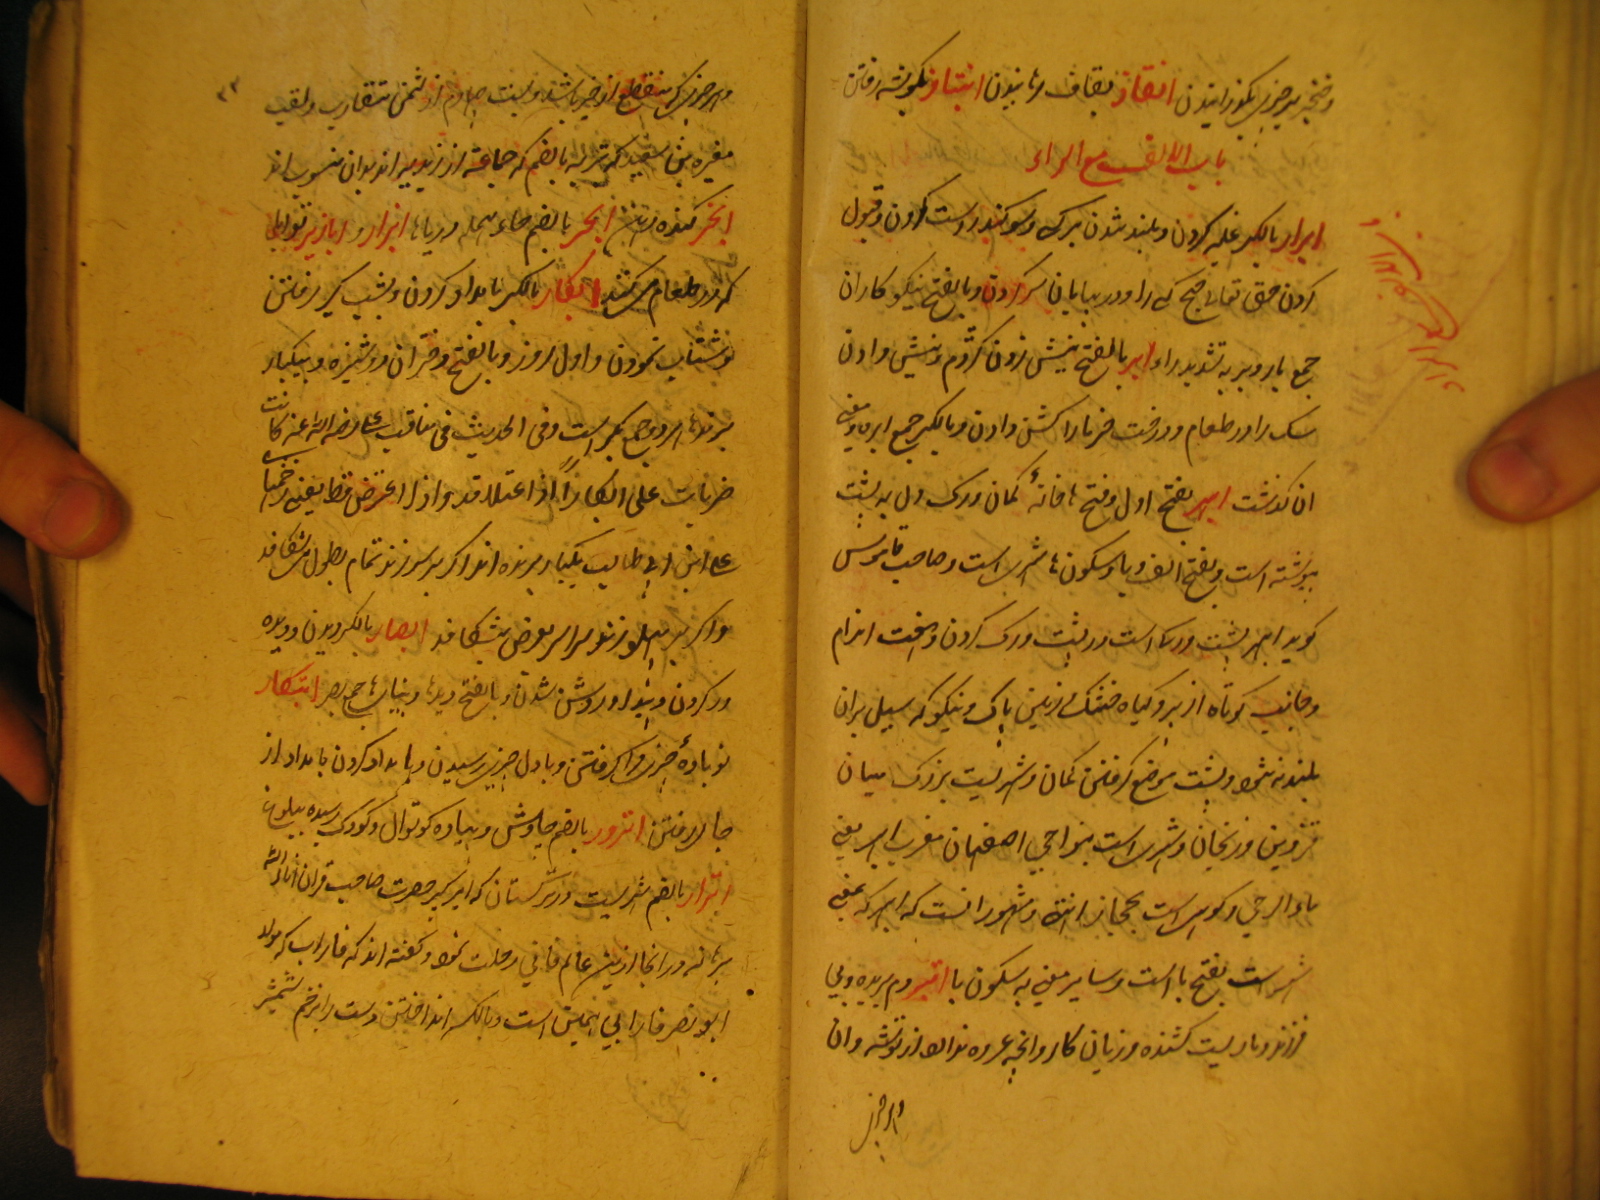 و خنجه پر چیزی بگذرانیدن انقاذ بقاف رهانیدن انتباذ بگوشه رفتن
باب الالف مع الراء
ابرار بالکسر غلبه کردن و بلند شدن بر کسی و سوکند راست کردن و قبول
کردن حق تعالی حج کسی را و در بیابان سفر کردن و بالفتح نیکو کاران
جمع بار و بر به تشدید راء ابر بالفتح نیش زدن کژدم و نیش دادن
سک را در طعام و درخت خرما را کشن دادن و بالکسر جمع ابره و معنی
ان کذشت ابهر بفتح اول و فتح ها خانهٔ کمان و رک دل به پشت
پیوسته است و بفتح الف و با و سکون ها شهری است و صاحب قاموس
کوید ابهر پشت و رکها است در پشت و رک کردن و سخت اندام
و جانب کوتاه از پر و کیاه خشک و زمین پاک و نیکو که سیل بران
بلند نشود و پشت موضع کرفتن کمان و شهریست بزرک میان
قزوین و زنجان و شهری است بنواحی اصفهان معرب ابهر یعنی
ماء الرحی و کوهی است بحجاز انتهی و مشهور انست که ابهر که بمعنی
شهر است بفتح با است و سایر معنی به سکون با ابتر دم بریده و بی
فرزند و ماریست کشنده و زیان کار و انچه عروه ندارد از توشه و ان
و هر چیز
و هر چیزی که منقطع از خیر باشد و بیت چهارم از مثمن متقارب و لقب
مغیره بن سعید که بتریه بالضم که جماعة از زیدیه اند بدان منسوب اند
ابخر کنده دهن ابحر بالضم حاء مهمله دریاها ابزار و ابازیر توابل
که در طعام می کنند ابکار بالکسر بامداد کردن و بشب کیر رفتن
و شتاب نمودن و اول روز و بالفتح دختران دوشیزه و بیکبار
هر دو جمع بکر است و فی الحدیث فی مناقب علی رضی الله عنه کانت
ضربات علی ابکارا اذا اعتلا قد و اذا اعترض قط یعنی زخمهای
علی ابن ابی طالب یکبار برنده اند اکر بر سر زند تمام بطول می شکافد
و اکر بر پهلو زند سراسر بعرض بشکافد ابصار بالکسر دیدن و دیده
ور کردن و پیدا و روشن شدن و بالفتح دیدها و بینائیها جمع بصر ابتکار
نوبادهٔ چیزی را کرفتن و باول چیزی رسیدن و بامداد کردن بامداد از
جا رفتن اترور بالضم چاوش و پیاده کوتوال و کودک رسیده ببلوغ
اترار بالضم شهریست در ترکستان که امیر کبیر حضرت صاحب قران انار الله
برهانه در انجا ازین عالم فانی رحلت نمود و کفته اند که فاراب که مولد
ابو نصر فارابی همین است و بالکسر انداختن دست را بزخم شمشیر